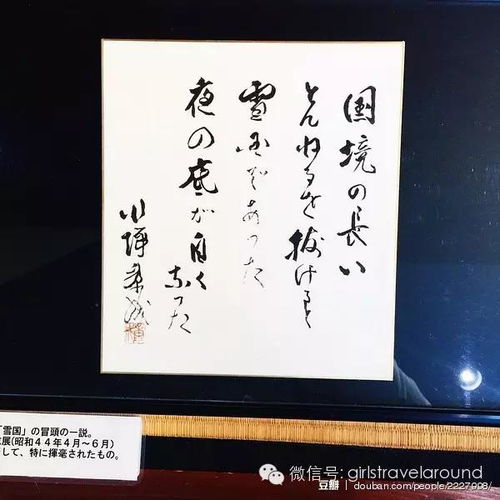 国境の長い
とんねるを抜けると
雪国であった
夜の底が白く
なった
川端康成
「雪国」の冒頭の一説。
展(昭和44年4月~6月)
して、特に揮毫されたもの。
微信号: girlstravelaround
豆瓣 | douban.com/people/2227008/